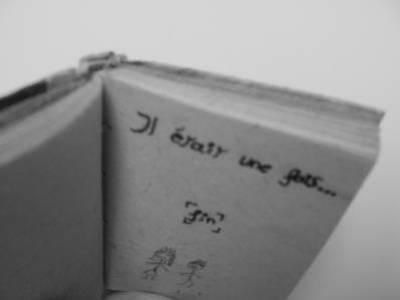 Il était une fois...
[fin]